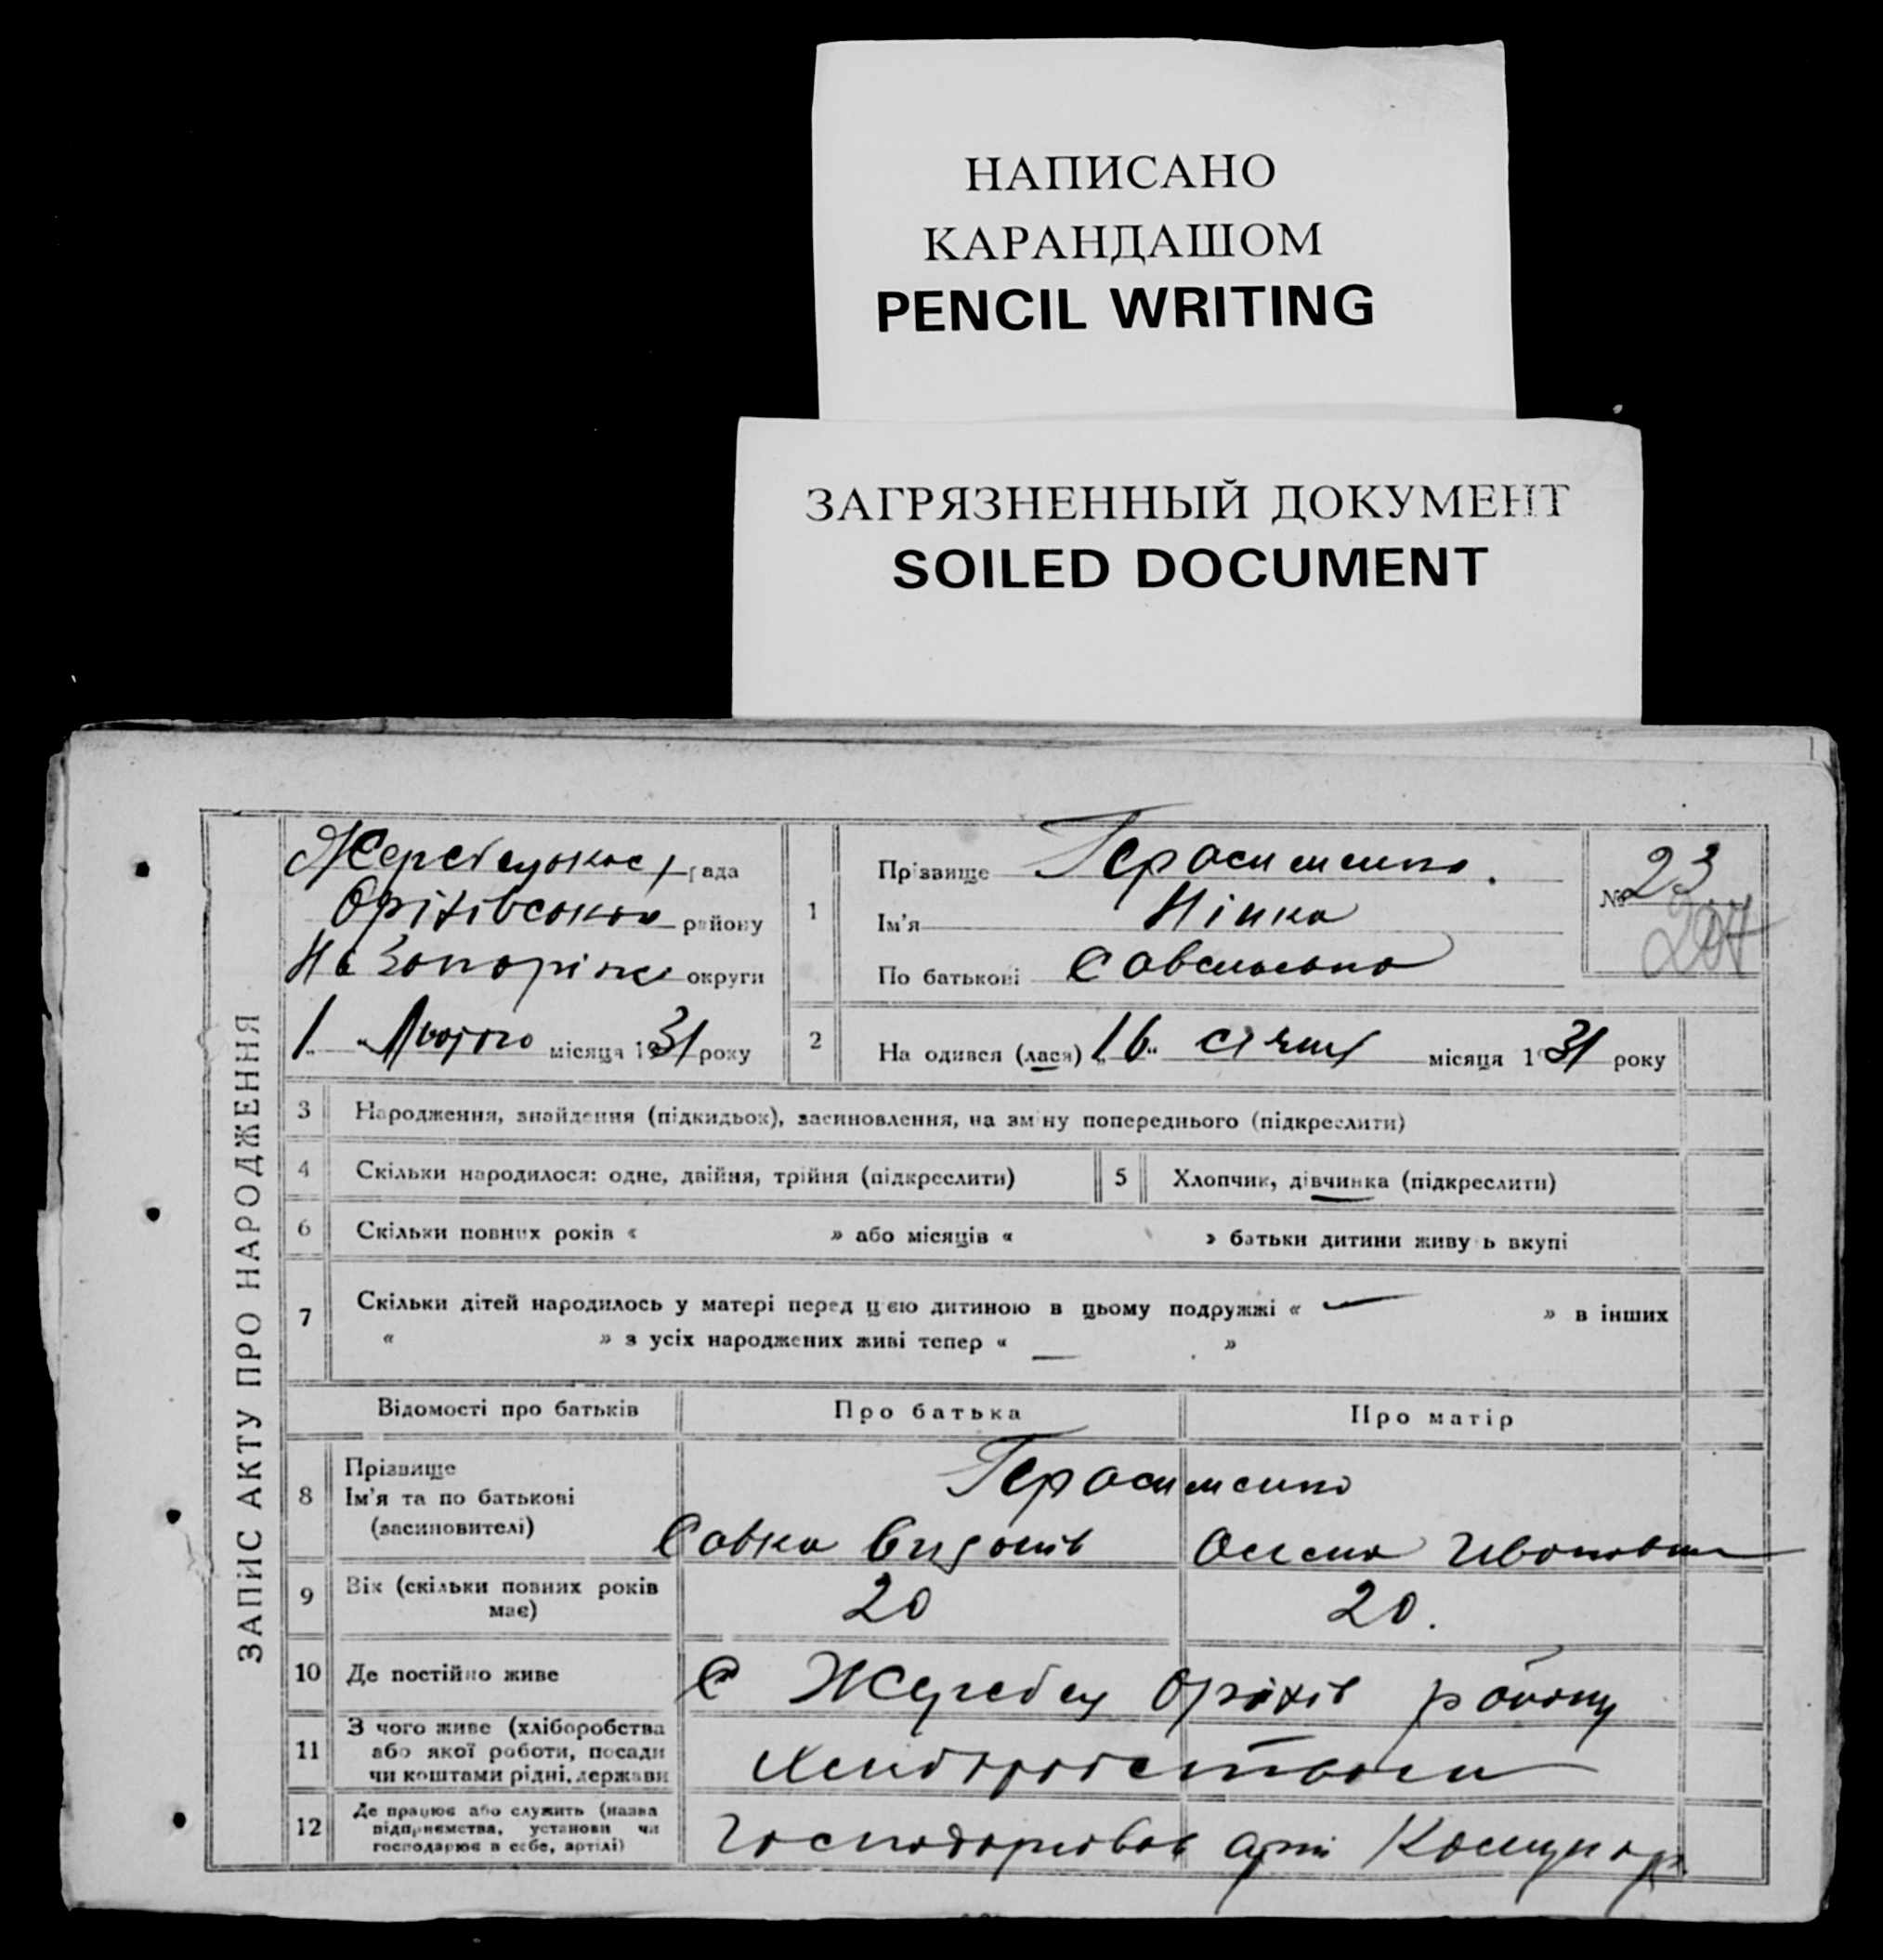 НАПИСАНО
КАРАНДАШОМ
PENCIL WRITING
ЗАГРЯЗНЕННЫЙ ДОКУМЕНТ
SOILED DOCUMENT
ЗАПИС АКТУ ПРО НАРОДЖЕННЯ
рада
Оріхівського району
На Запоріж округи
1 " Лютого місяця 1931 року
1
Прізвище Герасименко.
Ім'я Нінка
По батькові Савельевна
№ 23
207
2
На одився (лася) "16" січня місяця 1931 року
3 Народження, знайдення (підкидьок), засиновлення, на зміну попереднього (підкреслити)
4 Скільки народилося: одне, двійня, трійня (підкреслити) 5 Хлопчик, дівчинка (підкреслити)
6 Скільки повних років « » або місяців « » батьки дитини живу ь вкупі
7 Скільки дітей народилось у матері перед цією дитиною в цьому подружжі « — » в інших
« » з усіх народжених живі тепер « — »
Відомості про батьків Про батька Про матір
8 Прізвище Герасименко
Ім'я та по батькові
(засиновителі) Савка Оксана Ивановна
9 Вік (скільки повних років
має) 20 20.
10 Де постійно живе С Жеребец Оріхів району
11 З чого живе (хліборобства
або якої роботи, посади
чи коштами рідні, держави Хліборобством
12 Де працює або служить (назва
підприємства, установи чи
господарює в себе, артілі) арт Комунар